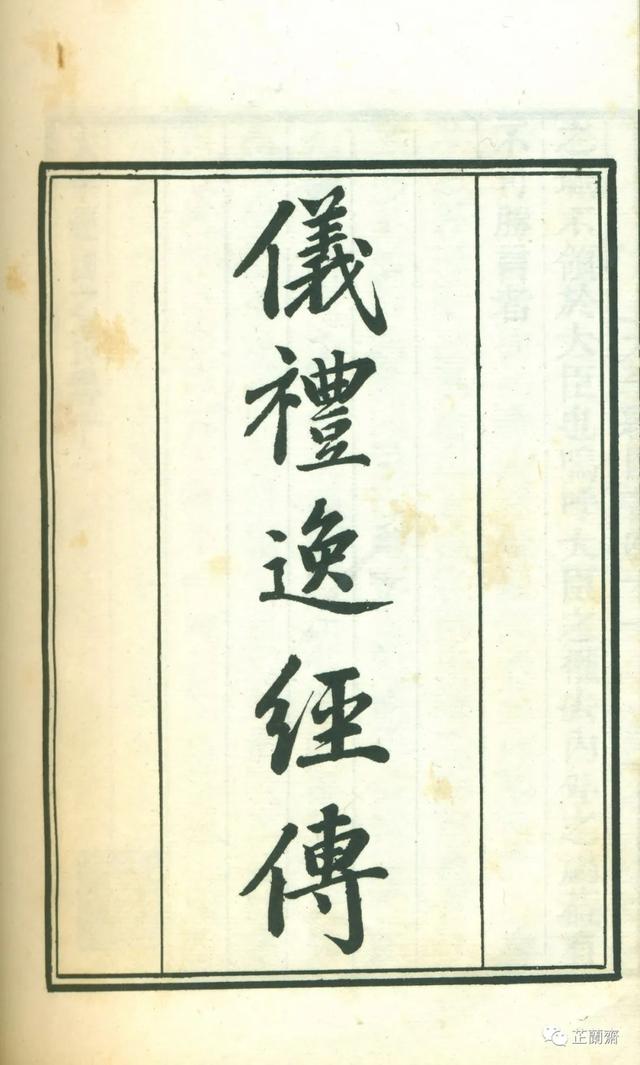 儀禮逸經傳
芷蘭齋